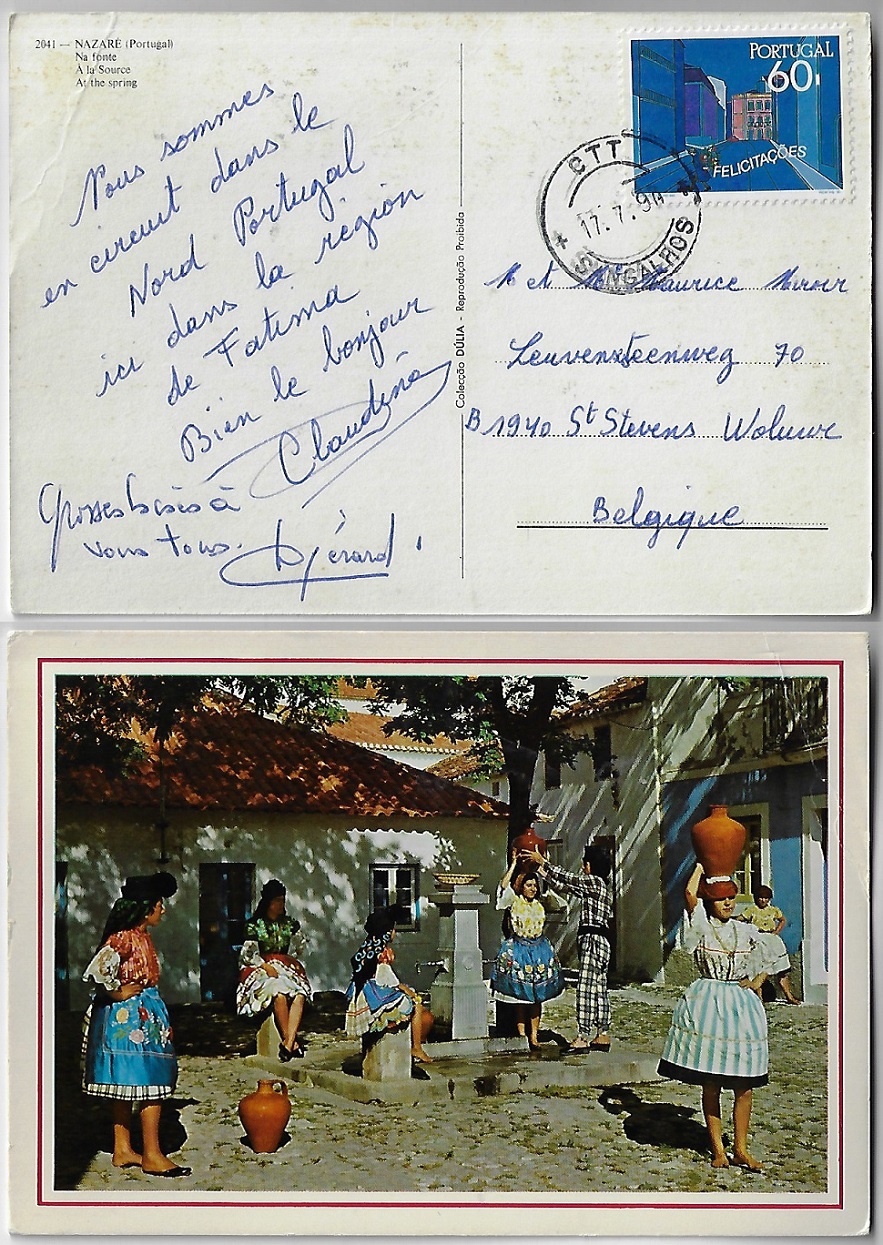 2041 — NAZARÉ (Portugal)
Na fonte
À la Source
At the spring
Nous sommes
en circuit dans le
Nord Portugal
ici dans la région
de Fatima
Bien le bonjour
Claudine
Grosses bises à
vous tous.
Gérard
Colecção DÚLIA - Reprodução Proibida
PORTUGAL
60
FELICITAÇÕES
CTT
17.7.9
SANGALHOS
M et Mme Maurice
Leuvensteenweg 70
B 1940 St Stevens Woluwe
Belgique